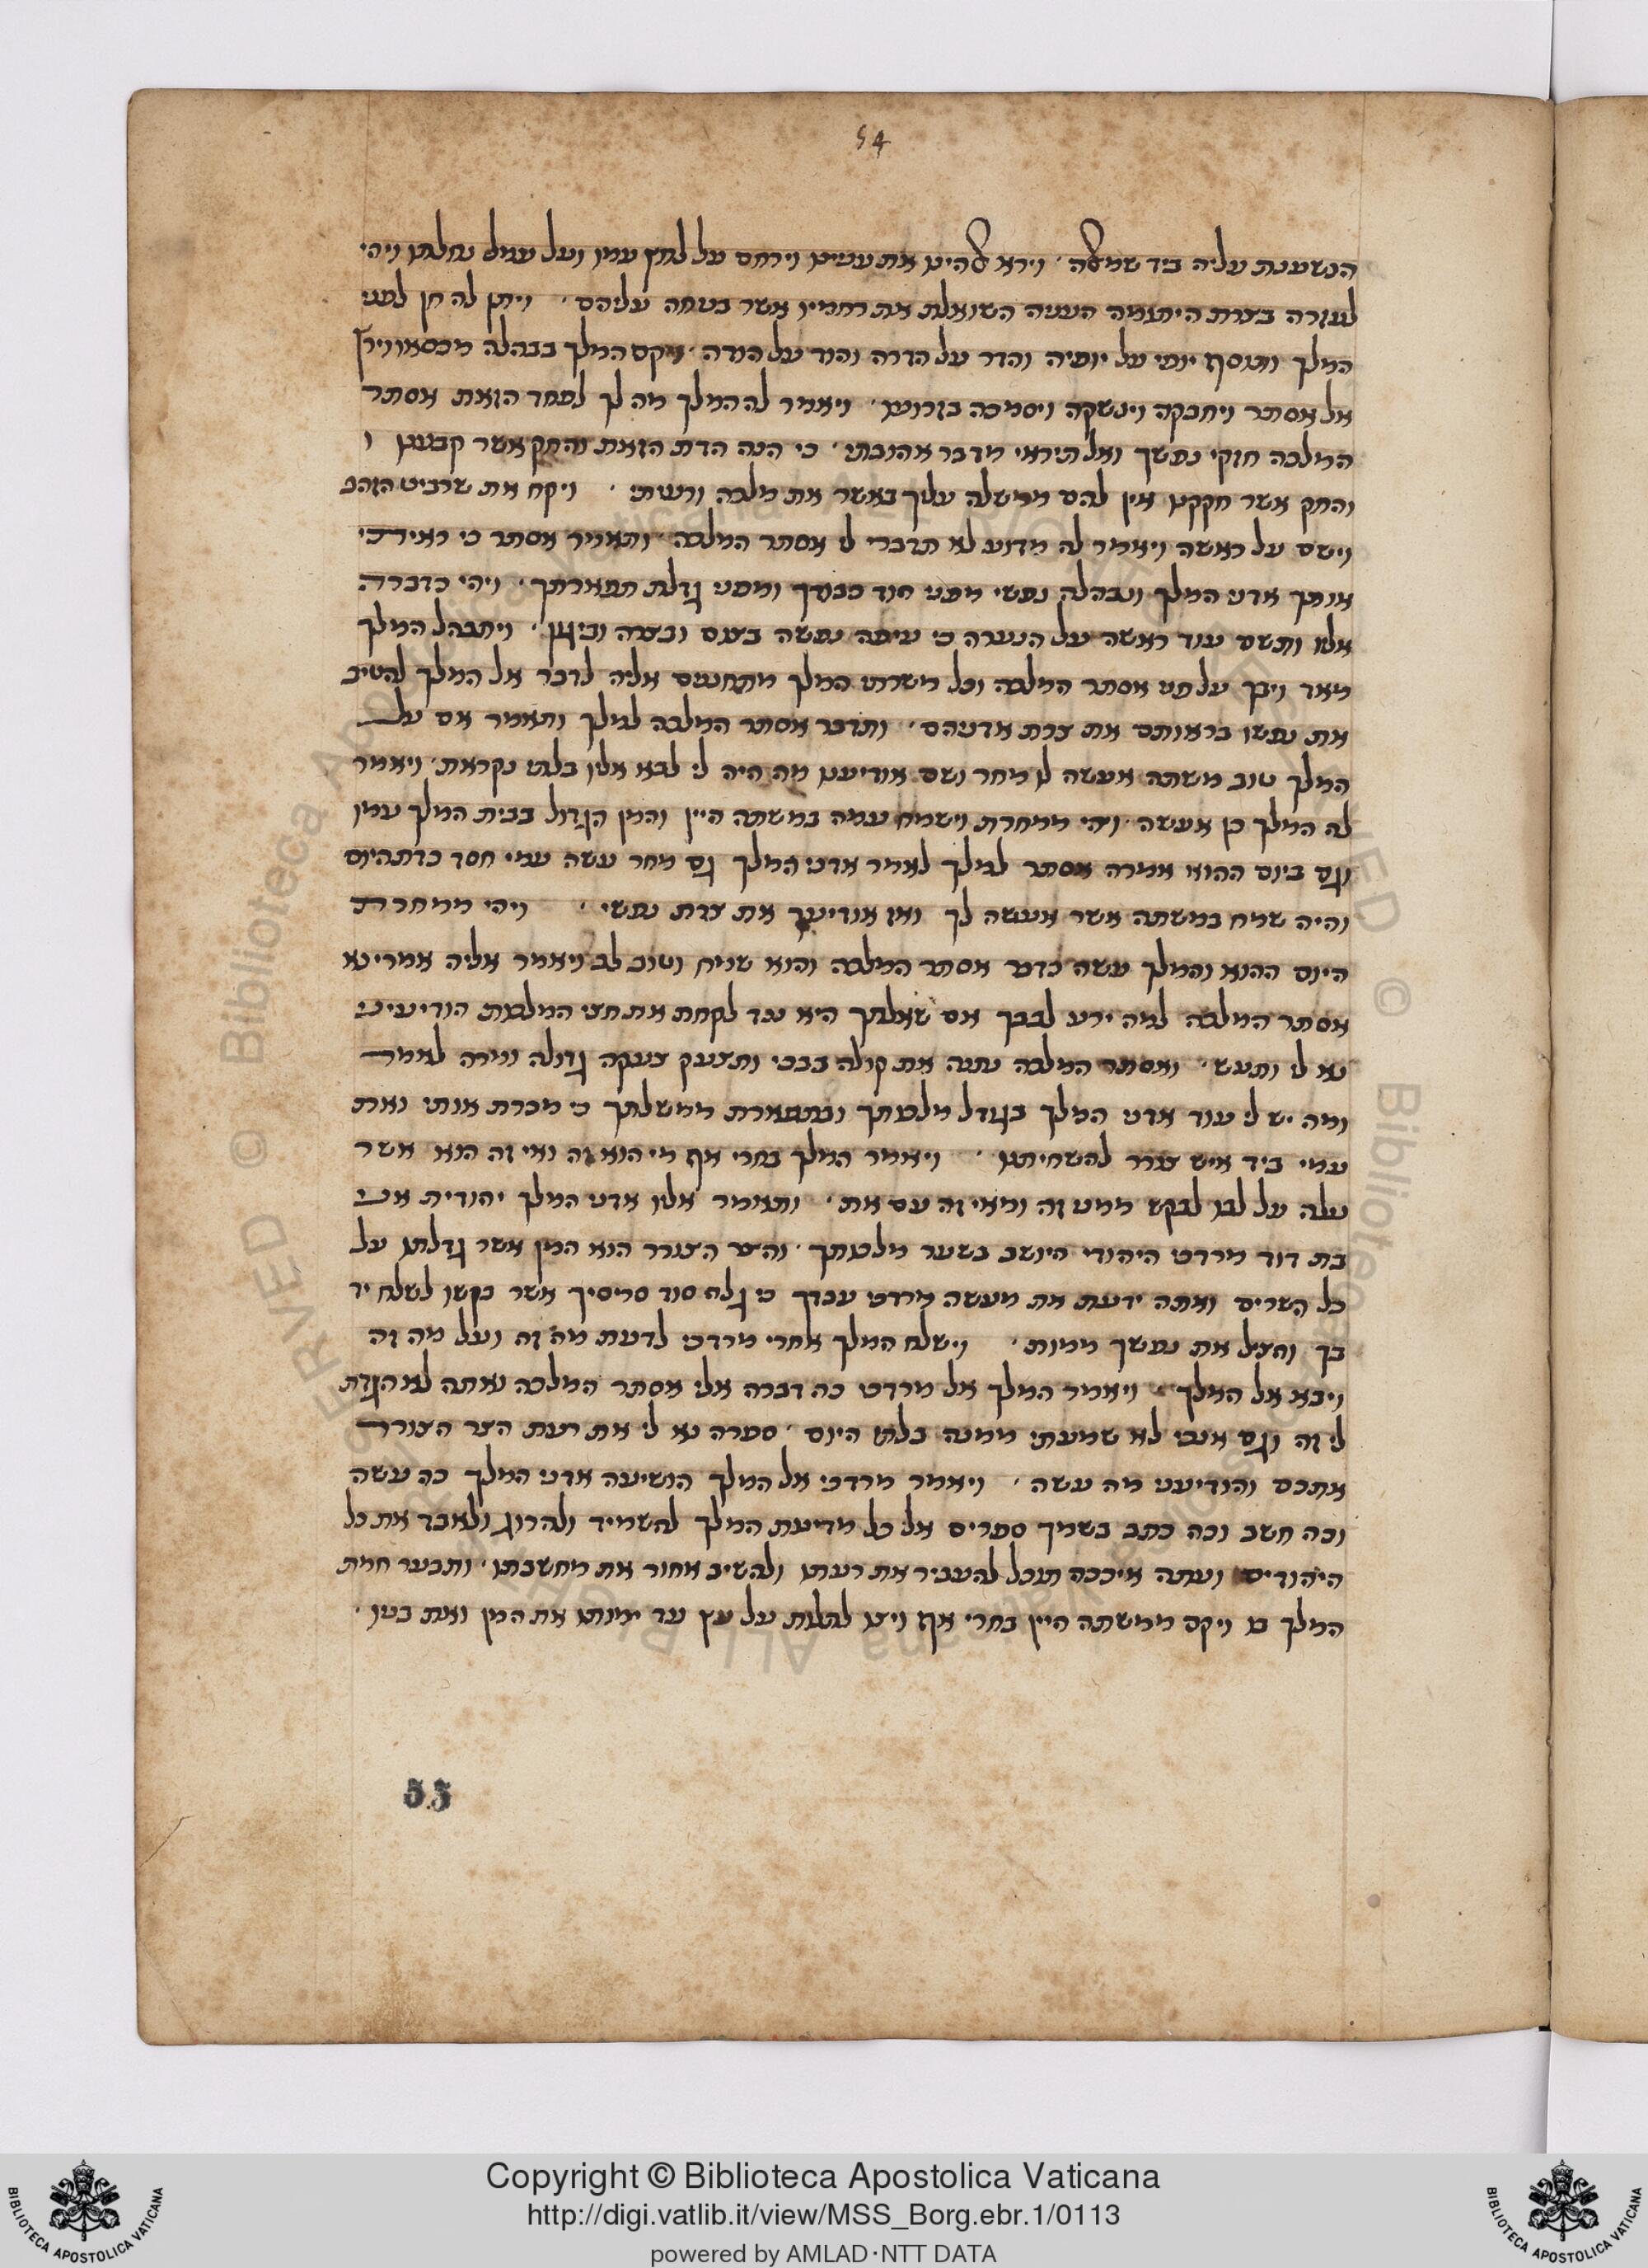 54
הנשענת עליה ביד שמאלה׳ וירא אלהינו את ענייה וירחם על לחץ עמו ועל עמל נחלתו ויהי
לעזרה בצרת היתומה הענייה השואלת את רחמיו אשר בטחה עליהם׳ ויתן לה חן לפני
המלך ותוסף יופי על יופיה והדר על הדרה והוד על הודה׳ ויקם המלך בבהלה מכסאו וירץ
אל אסתר ויחבקה וינשקה ויסמכה בזרועו׳ ויאמר לה המלך מה לך לפחד הזאת אסתר
המלכה חזקי נפשך ואל תיראי מדבר אהובתי׳ כי הנה הדת הזאת והחק אשר קבענו ו
והחק אשר חקקנו אין להם ממשלה עליך באשר את מלכה ורעיתי׳ ויקח את שרביט הזהב
וישם על ראשה ויאמר לה מדוע לא תדברי לי אסתר המלכה׳ ותאמר אסתר כי ראיתי
אותך אדני המלך ונבהלה נפשי מפני הוד כבודך ומפני גדלת תפארתך׳ ויהי כדברה
אליו ותשם עוד ראשה על הנערה כי עיפה נפשה בצום ובצרה וביגון׳ ויתבהל המלך
מאד ויבך על פני אסתר המלכה וכל משרתי המלך מתחננים אליה לדבר אל המלך להשיב
את נפשו בראותם את צרת אדניהם׳ ותדבר אסתר המלכה למלך ותאמר אם על
המלך טוב משתה אעשה לו מחר ושם אודיענו מה היה לי לבא אליו בלתי נקראת׳ ויאמר
לה המלך כן אעשה׳ ויהי ממחרת וישמח עמה במשתה היין והמן הגדול בבית המלך עמו
וגם ביום ההוא אמרה אסתר למלך לאמר אדני המלך גם מחר עשה עמי חסד כדת היום
והיה שמח במשתה אשר אעשה לך ואז אודיעך את צרת נפשי׳ ויהי ממחרת
היום ההוא והמלך עשה כדבר אסתר המלכה והוא שמח וטוב לב ויאמר אליה אמרי נא
אסתר המלכה למה ירע לבבך אם שאלתך היא עד לקחת את חצי המלכות הודיעיני
נא לי ותעש׳ ואסתר המלכה נתנה את קולה בבכי ותצעק צעקה גדולה ומרה לאמר
ומה יש לי עוד אדני המלך בגודל מלכותך ובתפארת ממשלתך כי מכרת אותי ואת
עמי ביד איש צורר להשחיתנו׳ ויאמר המלך בחרי אף מי הוא זה ואי זה הוא אשר
עלה על לבו לבקש ממני זה ומאי זה עם את׳ ותאמר אליו אדני המלך יהודית אני
בת דוד מרדכי היהודי היושב בשער מלכותך׳ והצר הצורר הוא המן אשר גדלתו על
כל השרים ואתה ידעת את מעשה מרדכי עבדך כי גלה סוד סריסיך אשר בקשו לשלח יד
בך והציל את נפשך ממות׳ וישלח המלך אחרי מרדכי לדעת מה זה ועל מה זה
ויבא אל המלך׳ ויאמר המלך אל מרדכי כה דברה אלי אסתר המלכה ואתה לא הגדת
לי זה וגם אנכי לא שמעתי ממנה בלתי היום׳ ספרה נא לי את רעת הצר הצורר
אתכם והודיעני מה עשה׳ ויאמר מרדכי אל המלך הושיעה אדני המלך כה עשה
וכה חשב וכה כתב בשמך ספרים אל כל מדינת המלך להשמיד ולהרוג ולאבד את כל
היהודים ועתה איככה תוכל להעביר את רעתו ולהשיב אחור את מחשבתו׳ ותבער חמת
המלך בו ויקם ממשתה היין בחרי אף ויצו לתלות על עץ עד ימותו את המן ואת בניו׳
53
Copyright © Biblioteca Apostolica Vaticana
http://digi.vatlib.it/view/MSS_Borg.ebr.1/0113
powered by AMLAD·NTT DATA
BIBLIOTECA APOSTOLICA VATICANA
BIBLIOTECA APOSTOLICA VATICANA